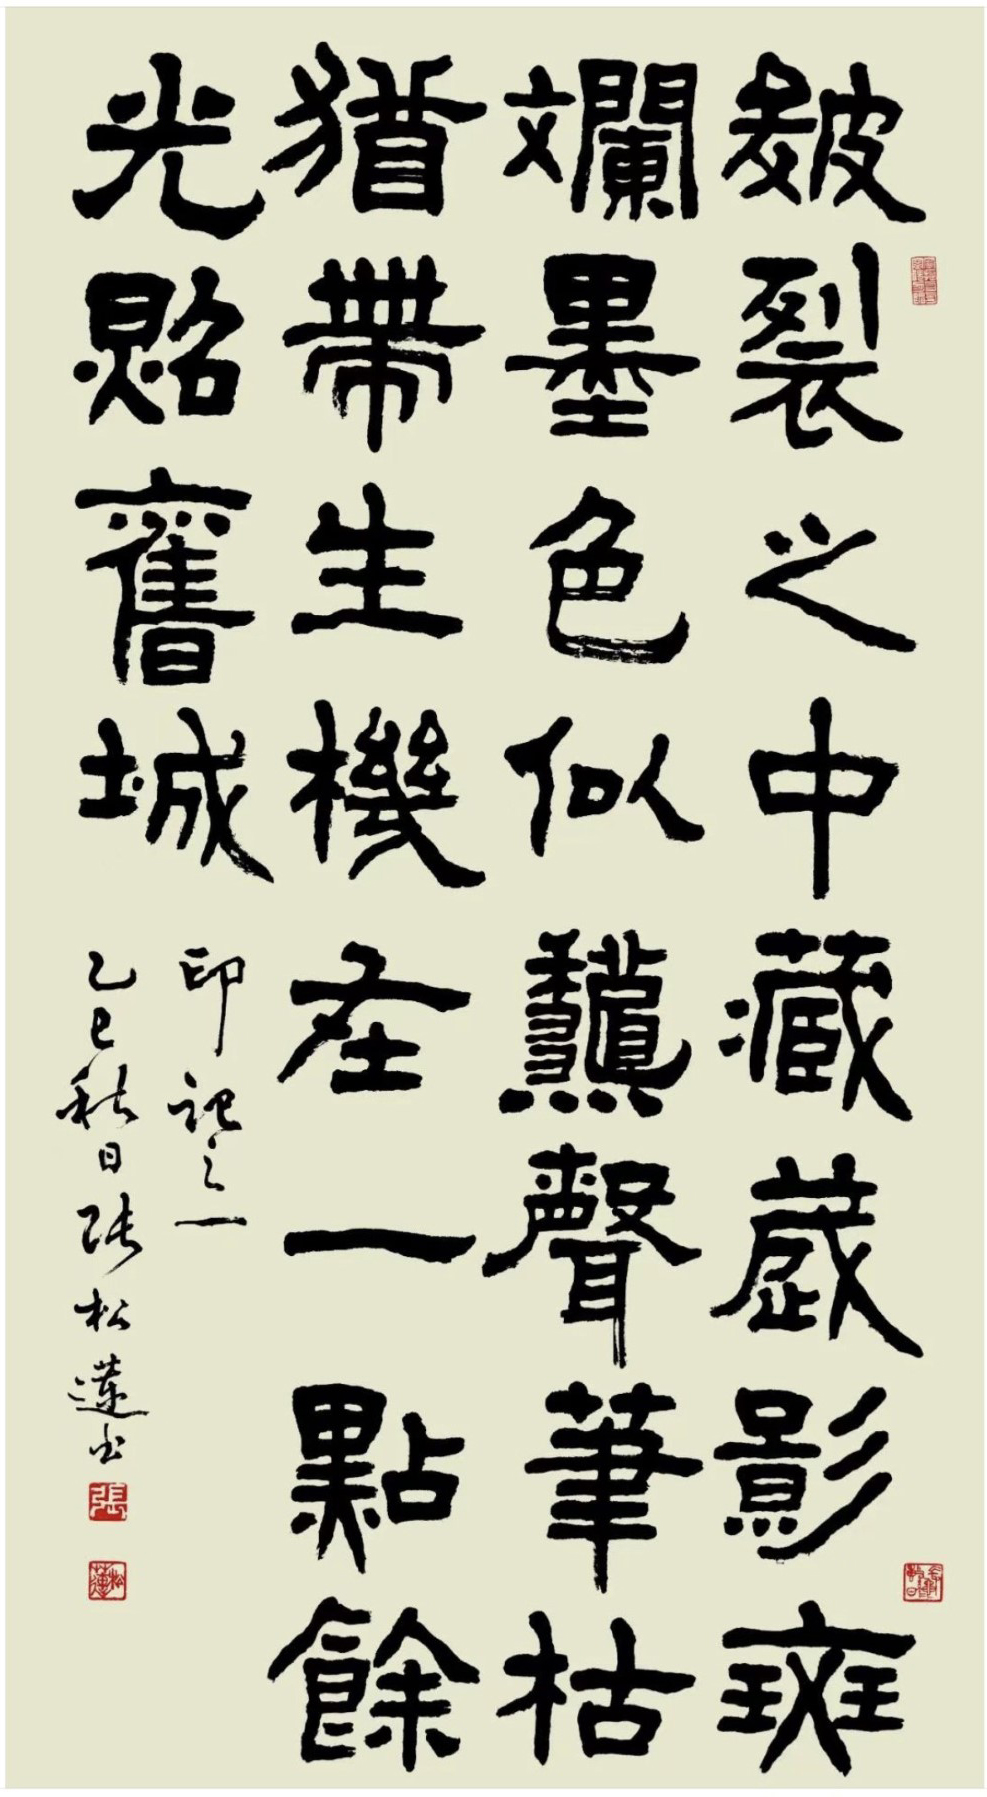 皴裂之中藏歲影斑
斕墨色似龝聲筆枯
猶帶生機在一點餘
光照舊城
印記之一
乙巳秋日張松蓮書
張
松蓮